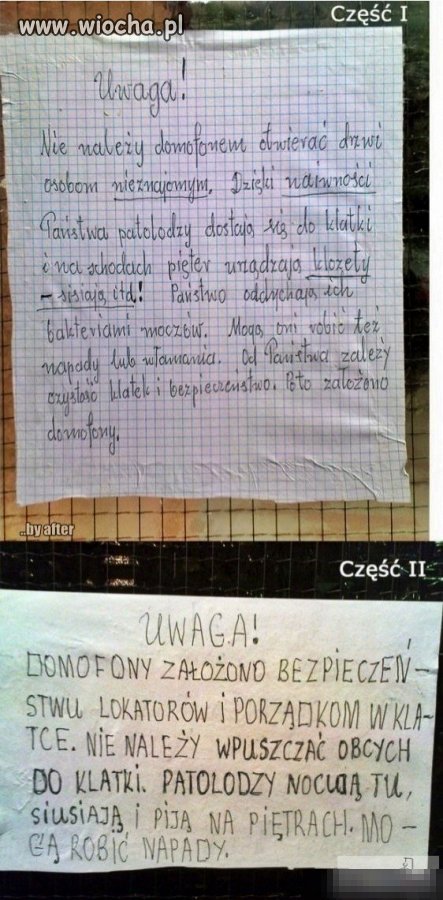 www.wiocha.pl
Część I
Uwaga!
Nie należy domofonem otwierać drzwi
osobom nieznajomym. Dzięki naiwności
Państwa patolodzy dostają się do klatki
i na schodach pięter urządzają klozety
- sisiają itd! Państwo oddychają ich
bakteriami moczów. Mogą oni robić też
napady lub włamania. Od Państwa zależy
czystość klatek i bezpieczeństwo. Po to założono
domofony.
..by after
Część II
UWAGA!
DOMOFONY ZAŁOŻONO BEZPIECZEŃ-
STWU LOKATORÓW i PORZĄDKOM W KLA-
TCE. NIE NALEŻY WPUSZCZAĆ OBCYCH
DO KLATKI. PATOLODZY NOCUJĄ TU,
SIUSIAJĄ I PIJĄ NA PIĘTRACH. MO-
GĄ ROBIĆ NAPADY.